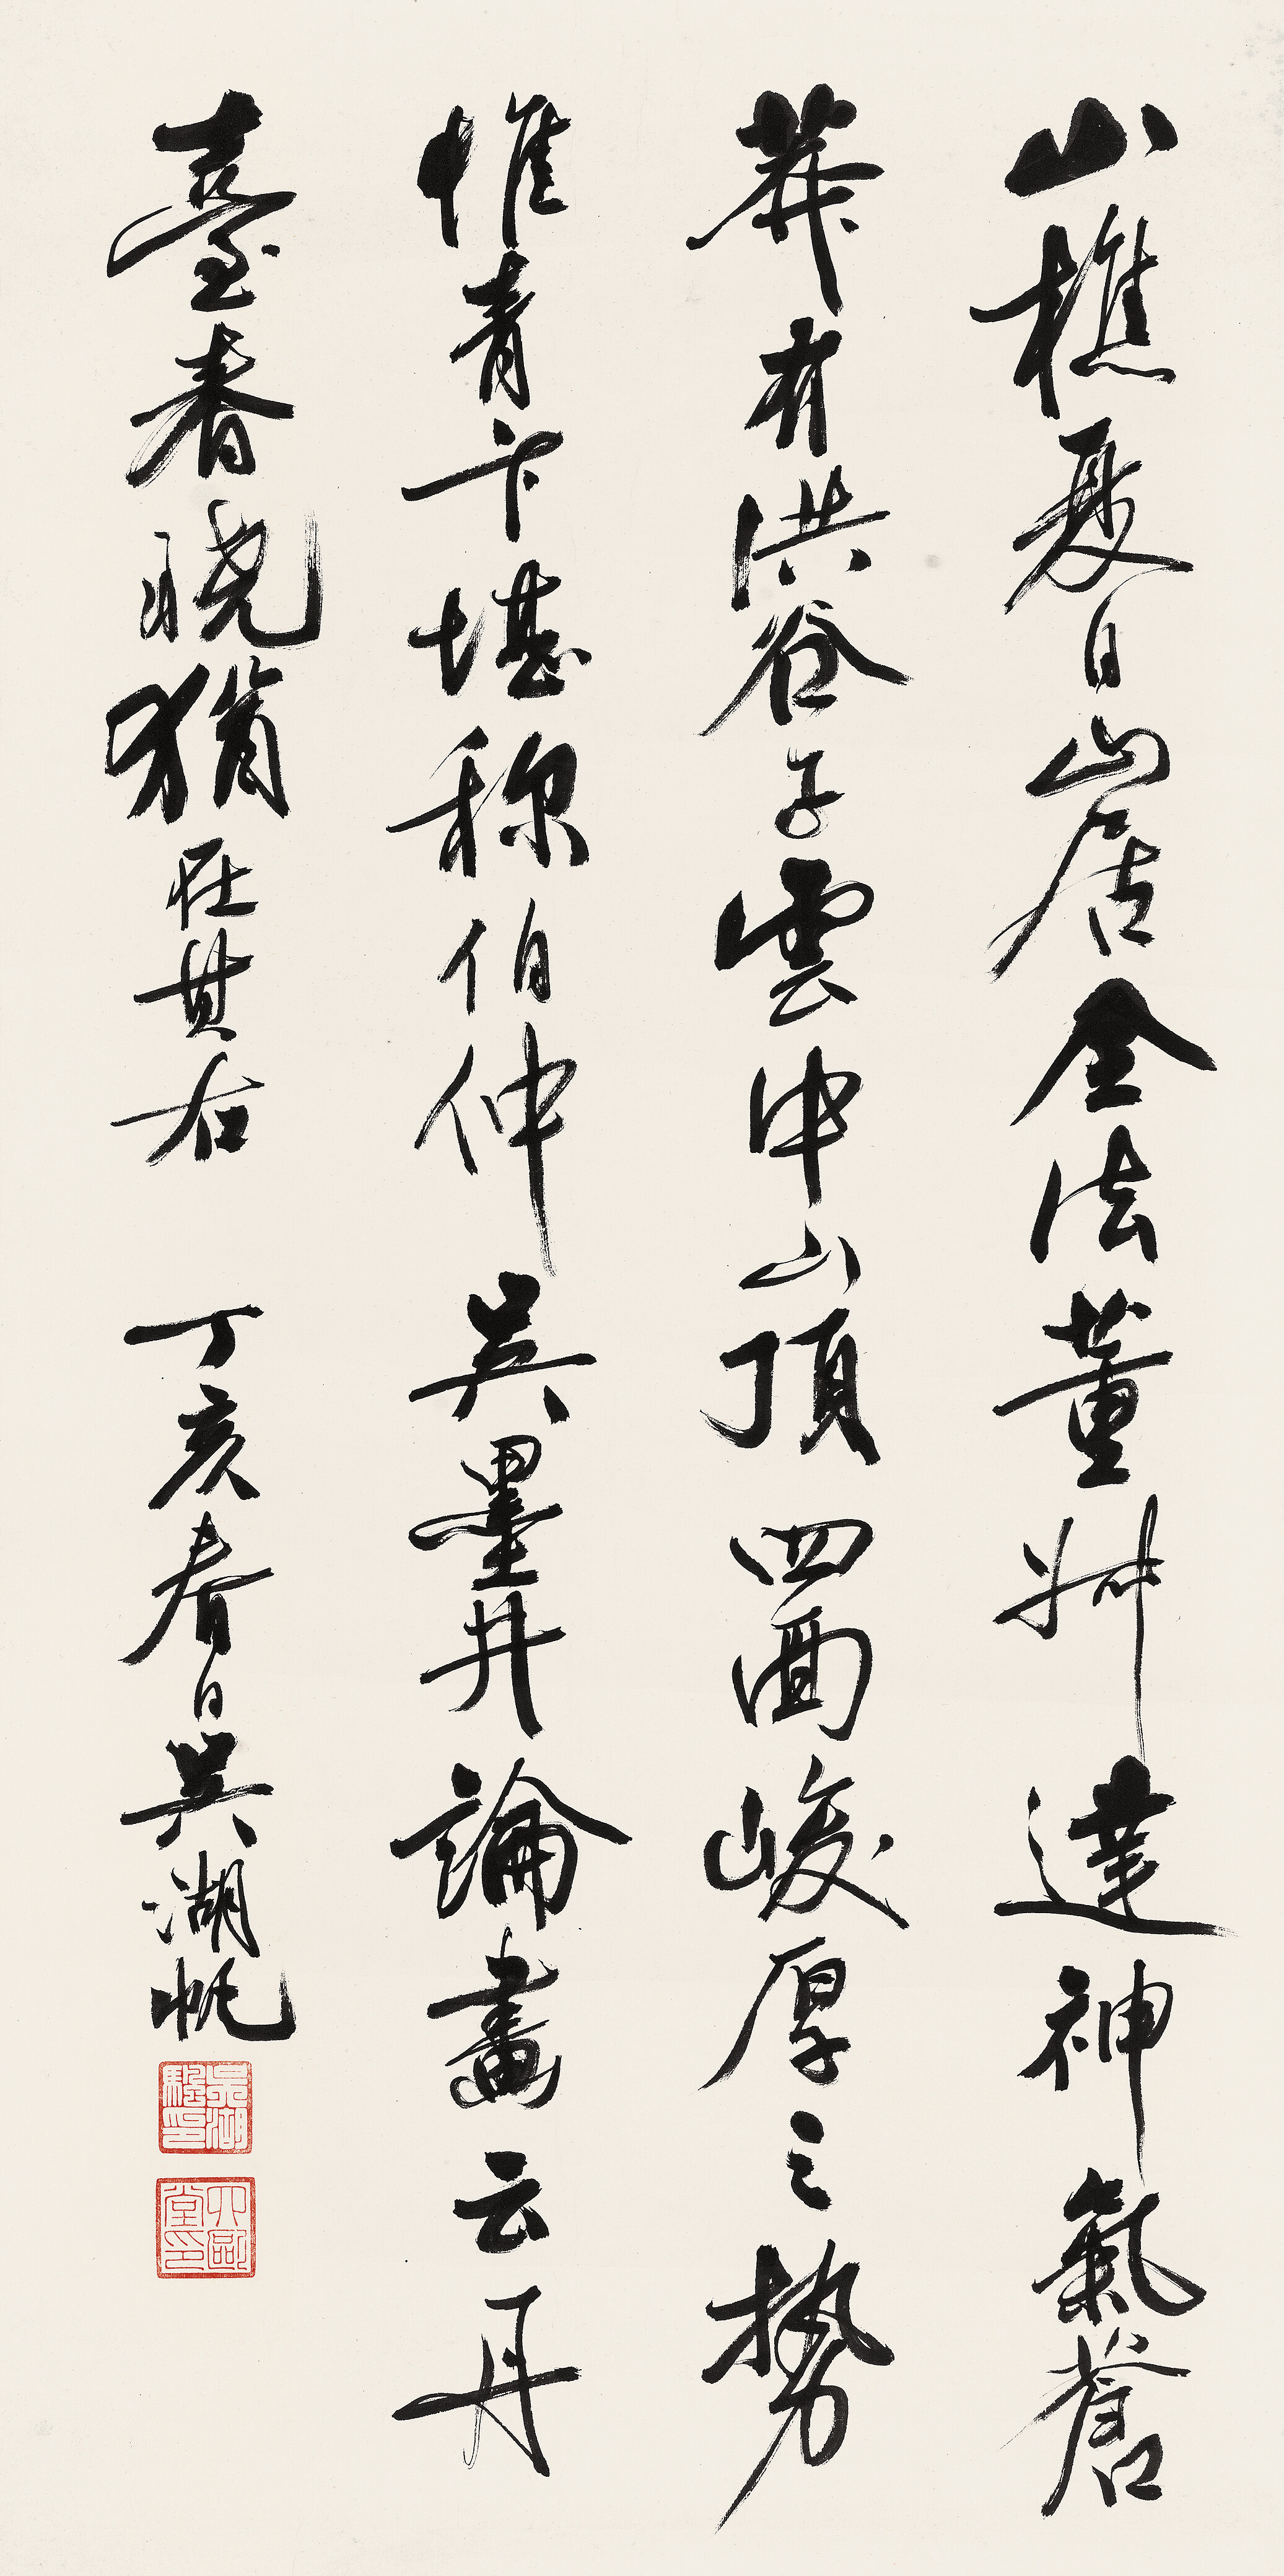 山樵夏日山居全法董北苑達神氣蒼
莽有洪谷子雲中山頂四面峻厚之勢
惟青卞堪稱伯仲吳墨井論畫云丹
臺春曉猶在其右 丁亥春日吳湖帆
吳湖颿印